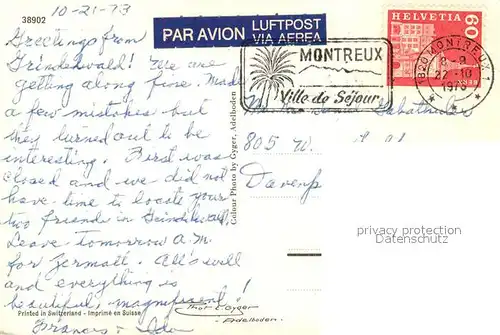 10-21-73
38902
Greetings from
Grindelwald! We are
getting along fine. Made
a few mistakes but
they turned out to be
interesting. First was
closed and we did not
have time to locate your
two friends in Grindelwald.
Leave tomorrow A.M.
for Zermatt. All's well
and everything is
beautiful, magnificent!
Frances &
Printed in Switzerland - Imprimé en Suisse
Colour Photo by Gyger, Adelboden
Gyger
Adelboden.
PAR AVION
LUFTPOST
VIA AEREA
MONTREUX
Ville de Séjour
HELVETIA
60
1820 MONTREUX 1
22-10
1973
805 W.
privacy protection
Datenschutz